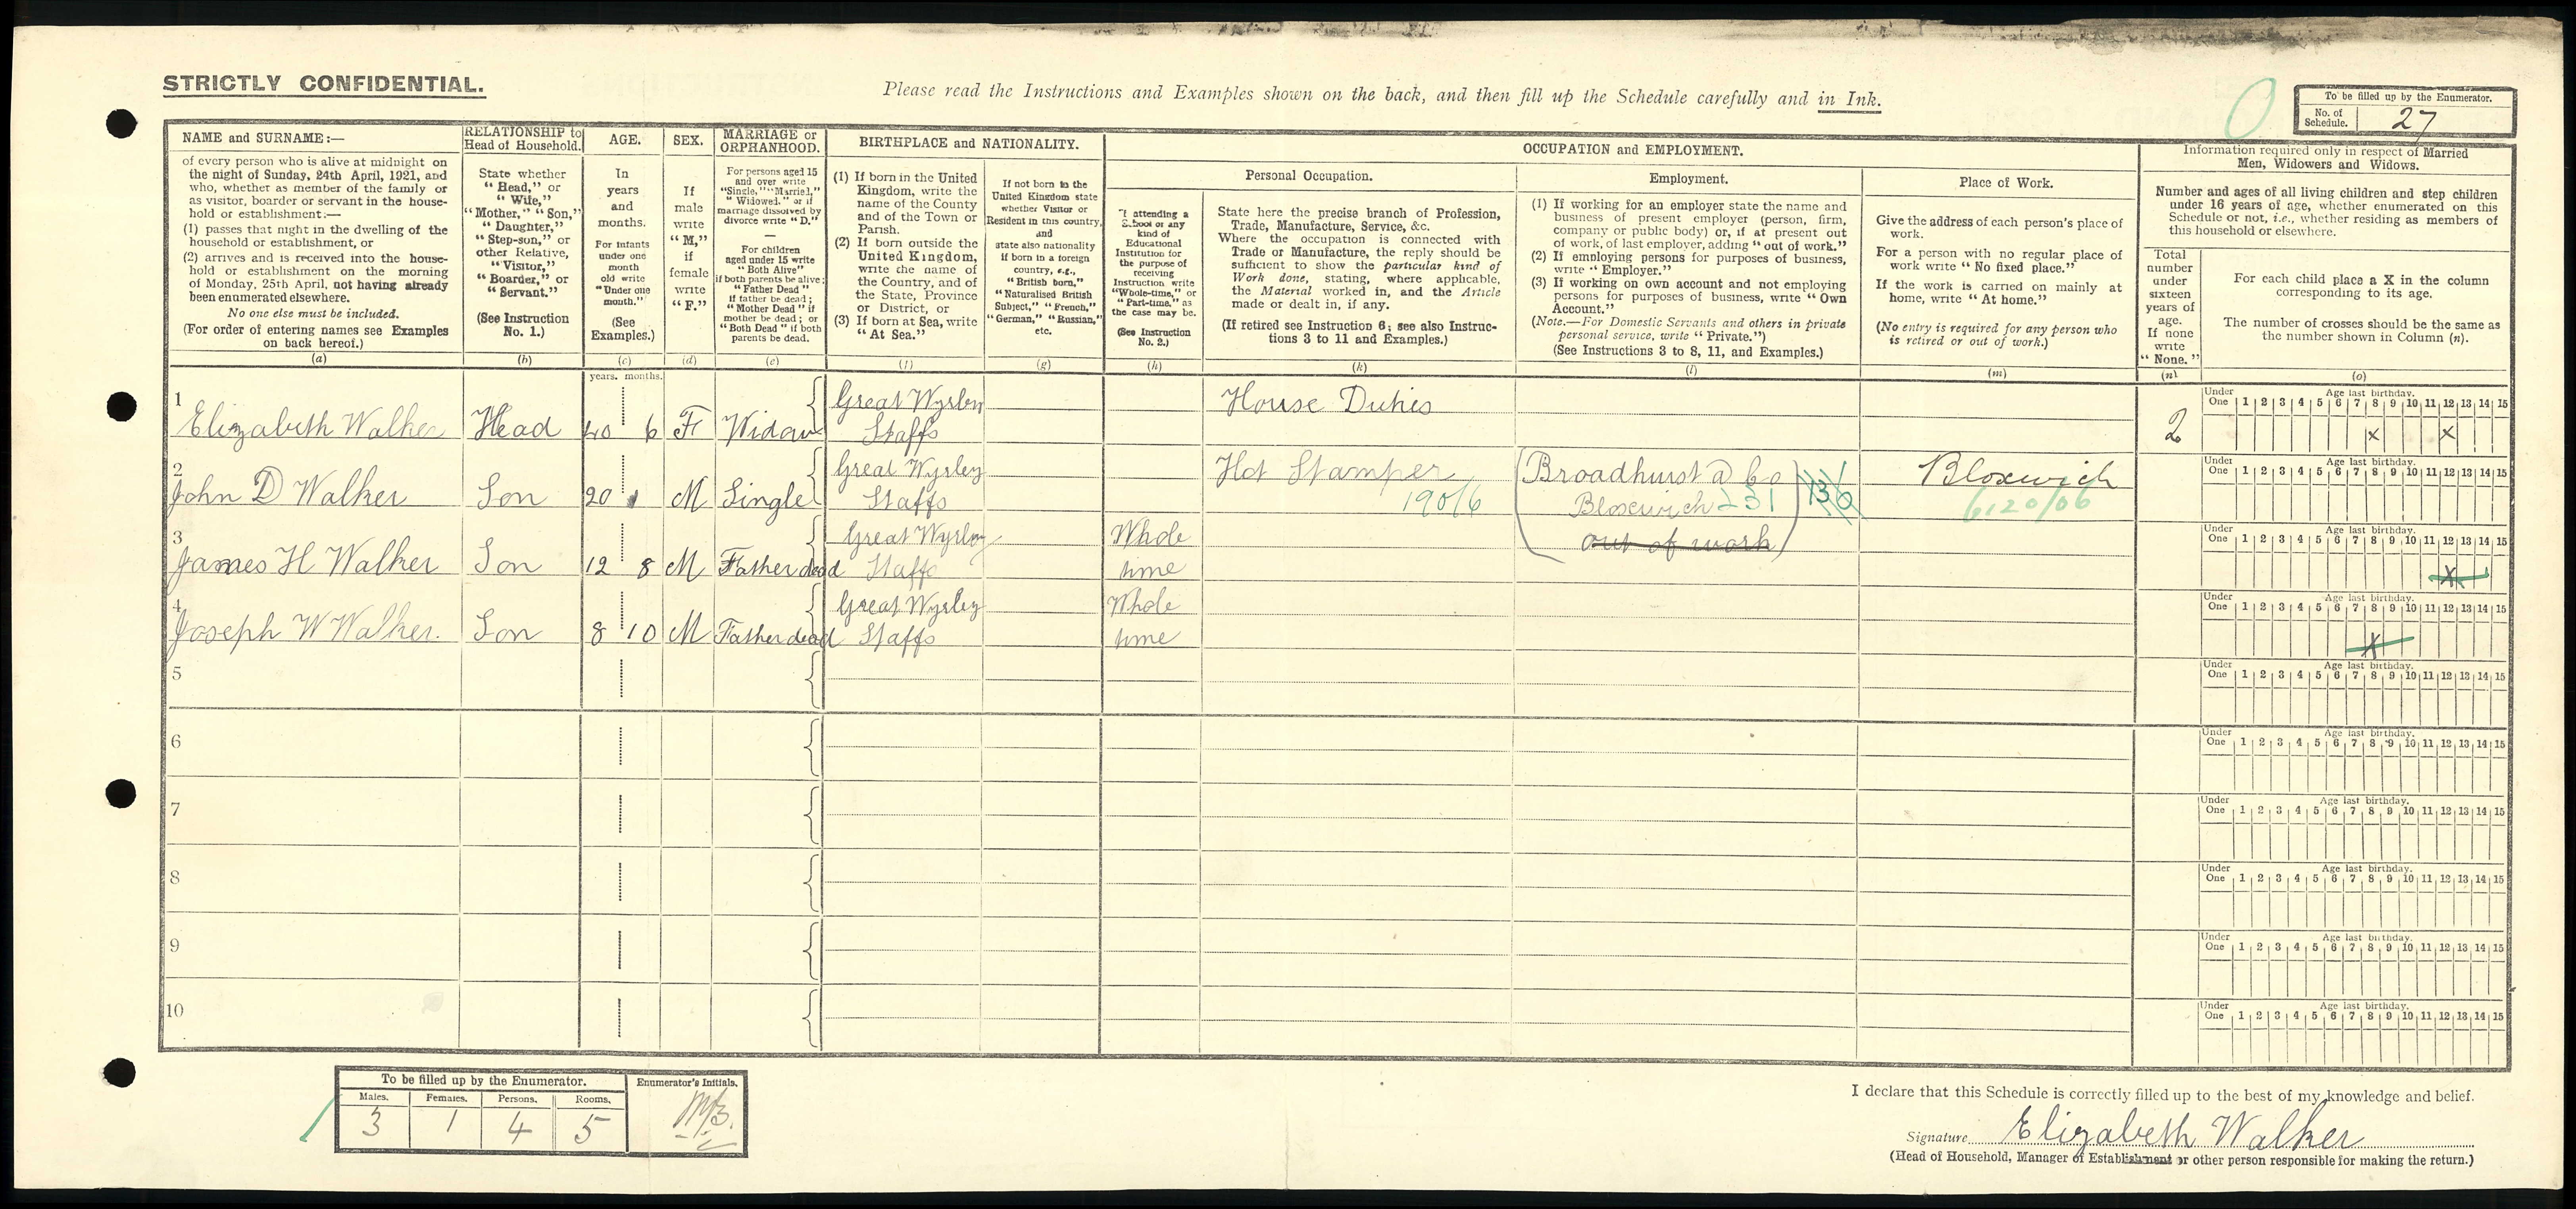 STRICTLY CONFIDENTIAL.
Please read the Instructions and Examples shown on the back, and then fill up the Schedule carefully and in Ink.
To be filled up by the Enumerator.
No. of Schedule. 27
NAME and SURNAME:—
of every person who is alive at midnight on
the night of Sunday, 24th April, 1921, and
who, whether as member of the family or
as visitor, boarder or servant in the house-
hold or establishment:—
(1) passes that night in the dwelling of the
household or establishment, or
(2) arrives and is received into the house-
hold or establishment on the morning
of Monday, 25th April, not having already
been enumerated elsewhere.
No one else must be included.
(For order of entering names see Examples
on back hereof.)
(a)
RELATIONSHIP to
Head of Household.
State whether
"Head," or
"Wife,"
"Mother," "Son,"
"Daughter,"
"Step-son," or
other Relative,
"Visitor,"
"Boarder," or
"Servant."
(See Instruction
No. 1.)
(b)
AGE.
In
years
and
months.
For infants
under one
month
old write
"Under one
month."
(See
Examples.)
(c)
SEX.
If
male
write
"M,"
if
female
write
"F."
(d)
MARRIAGE or
ORPHANHOOD.
For persons aged 15
and over write
"Single," "Married,"
"Widowed," or if
marriage dissolved by
divorce write "D."
—
For children
aged under 15 write
"Both Alive"
if both parents be alive;
"Father Dead"
if father be dead;
"Mother Dead" if
mother be dead; or
"Both Dead" if both
parents be dead.
(e)
BIRTHPLACE and NATIONALITY.
(1) If born in the United
Kingdom, write the
name of the County
and of the Town or
Parish.
(2) If born outside the
United Kingdom,
write the name of
the Country, and of
the State, Province
or District, or
(3) If born at Sea, write
"At Sea."
(f)
If not born in the
United Kingdom state
whether Visitor or
Resident in this country,
and
state also nationality
if born in a foreign
country, e.g.,
"British born,"
"Naturalised British
Subject," "French,"
"German," "Russian,"
etc.
(g)
OCCUPATION and EMPLOYMENT.
Personal Occupation.
If attending a
School or any
kind of
Educational
Institution for
the purpose of
receiving
Instruction write
"Whole-time," or
"Part-time," as
the case may be.
(See Instruction
No. 2.)
(h)
State here the precise branch of Profession,
Trade, Manufacture, Service, &c.
Where the occupation is connected with
Trade or Manufacture, the reply should be
sufficient to show the particular kind of
Work done, stating, where applicable,
the Material worked in, and the Article
made or dealt in, if any.
(If retired see Instruction 6; see also Instruc-
tions 3 to 11 and Examples.)
(k)
Employment.
(1) If working for an employer state the name and
business of present employer (person, firm,
company or public body) or, if at present out
of work, of last employer, adding "out of work."
(2) If employing persons for purposes of business,
write "Employer."
(3) If working on own account and not employing
persons for purposes of business, write "Own
Account."
(Note.—For Domestic Servants and others in private
personal service, write "Private.")
(See Instructions 3 to 8, 11, and Examples.)
(l)
Place of Work.
Give the address of each person's place of
work.
For a person with no regular place of
work write "No fixed place."
If the work is carried on mainly at
home, write "At home."
(No entry is required for any person who
is retired or out of work.)
(m)
Information required only in respect of Married
Men, Widowers and Widows.
Number and ages of all living children and step children
under 16 years of age, whether enumerated on this
Schedule or not, i.e., whether residing as members of
this household or elsewhere.
Total
number
under
sixteen
years of
age.
If none
write
"None."
(n)
For each child place a X in the column
corresponding to its age.
The number of crosses should be the same as
the number shown in Column (n).
(o)
years. months.
1 Elizabeth Walker Head 40 6 F Widow Great Wyrley Staffs House Duties 2
Under One Age last birthday. 1 2 3 4 5 6 7 8 9 10 11 12 13 14 15
x x
2 John D Walker Son 20 1 M Single Great Wyrley Staffs Hot Stamper 190/6 Broadhurst & Co Bloxwich 231 136 out of work Bloxwich 6120/06
Under One Age last birthday. 1 2 3 4 5 6 7 8 9 10 11 12 13 14 15
3 James H Walker Son 12 8 M Father dead Great Wyrley Staffs Whole time
Under One Age last birthday. 1 2 3 4 5 6 7 8 9 10 11 12 13 14 15
X
4 Joseph W Walker. Son 8 10 M Father dead Great Wyrley Staffs Whole time
Under One Age last birthday. 1 2 3 4 5 6 7 8 9 10 11 12 13 14 15
X
5
Under One Age last birthday. 1 2 3 4 5 6 7 8 9 10 11 12 13 14 15
6
Under One Age last birthday. 1 2 3 4 5 6 7 8 9 10 11 12 13 14 15
7
Under One Age last birthday. 1 2 3 4 5 6 7 8 9 10 11 12 13 14 15
8
Under One Age last birthday. 1 2 3 4 5 6 7 8 9 10 11 12 13 14 15
9
Under One Age last birthday. 1 2 3 4 5 6 7 8 9 10 11 12 13 14 15
10
Under One Age last birthday. 1 2 3 4 5 6 7 8 9 10 11 12 13 14 15
To be filled up by the Enumerator. Enumerator's Initials.
Males. Females. Persons. Rooms.
3 1 4 5
I declare that this Schedule is correctly filled up to the best of my knowledge and belief.
Signature Elizabeth Walker
(Head of Household, Manager of Establishment or other person responsible for making the return.)